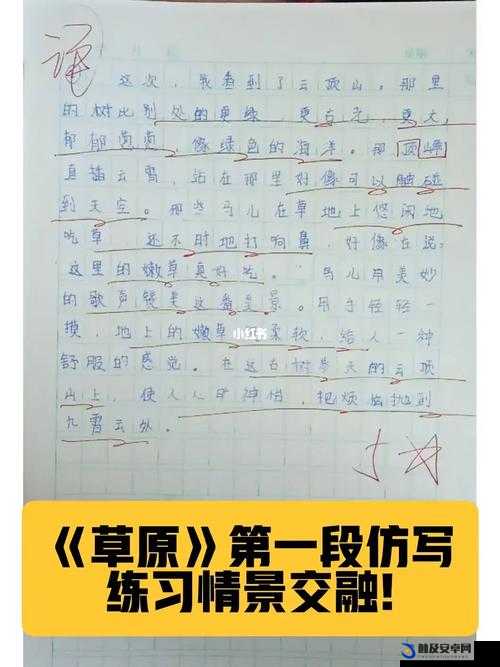 这次,我看到了云顶山。那里
的树比别处的更绿,更古老,更大,
郁郁茵茵,像绿色的海洋。那顶峰
直插云霄,站在那里好像可以触碰
到天空。那些马儿在草地上悠闲地
吃草,还不时地打响鼻,好像在说:
这里的嫩草真好吃。 鸟儿用美妙
的歌声赞美这番美景。用手轻轻一
摸,地上的嫩草柔软,给人一种
舒服的感觉。在这古树参天的云顶
山上,使人心旷神怡,把烦恼抛到
九霄云外。
小红书
《草原》第一段仿写
练习情景交融!
触及安卓网